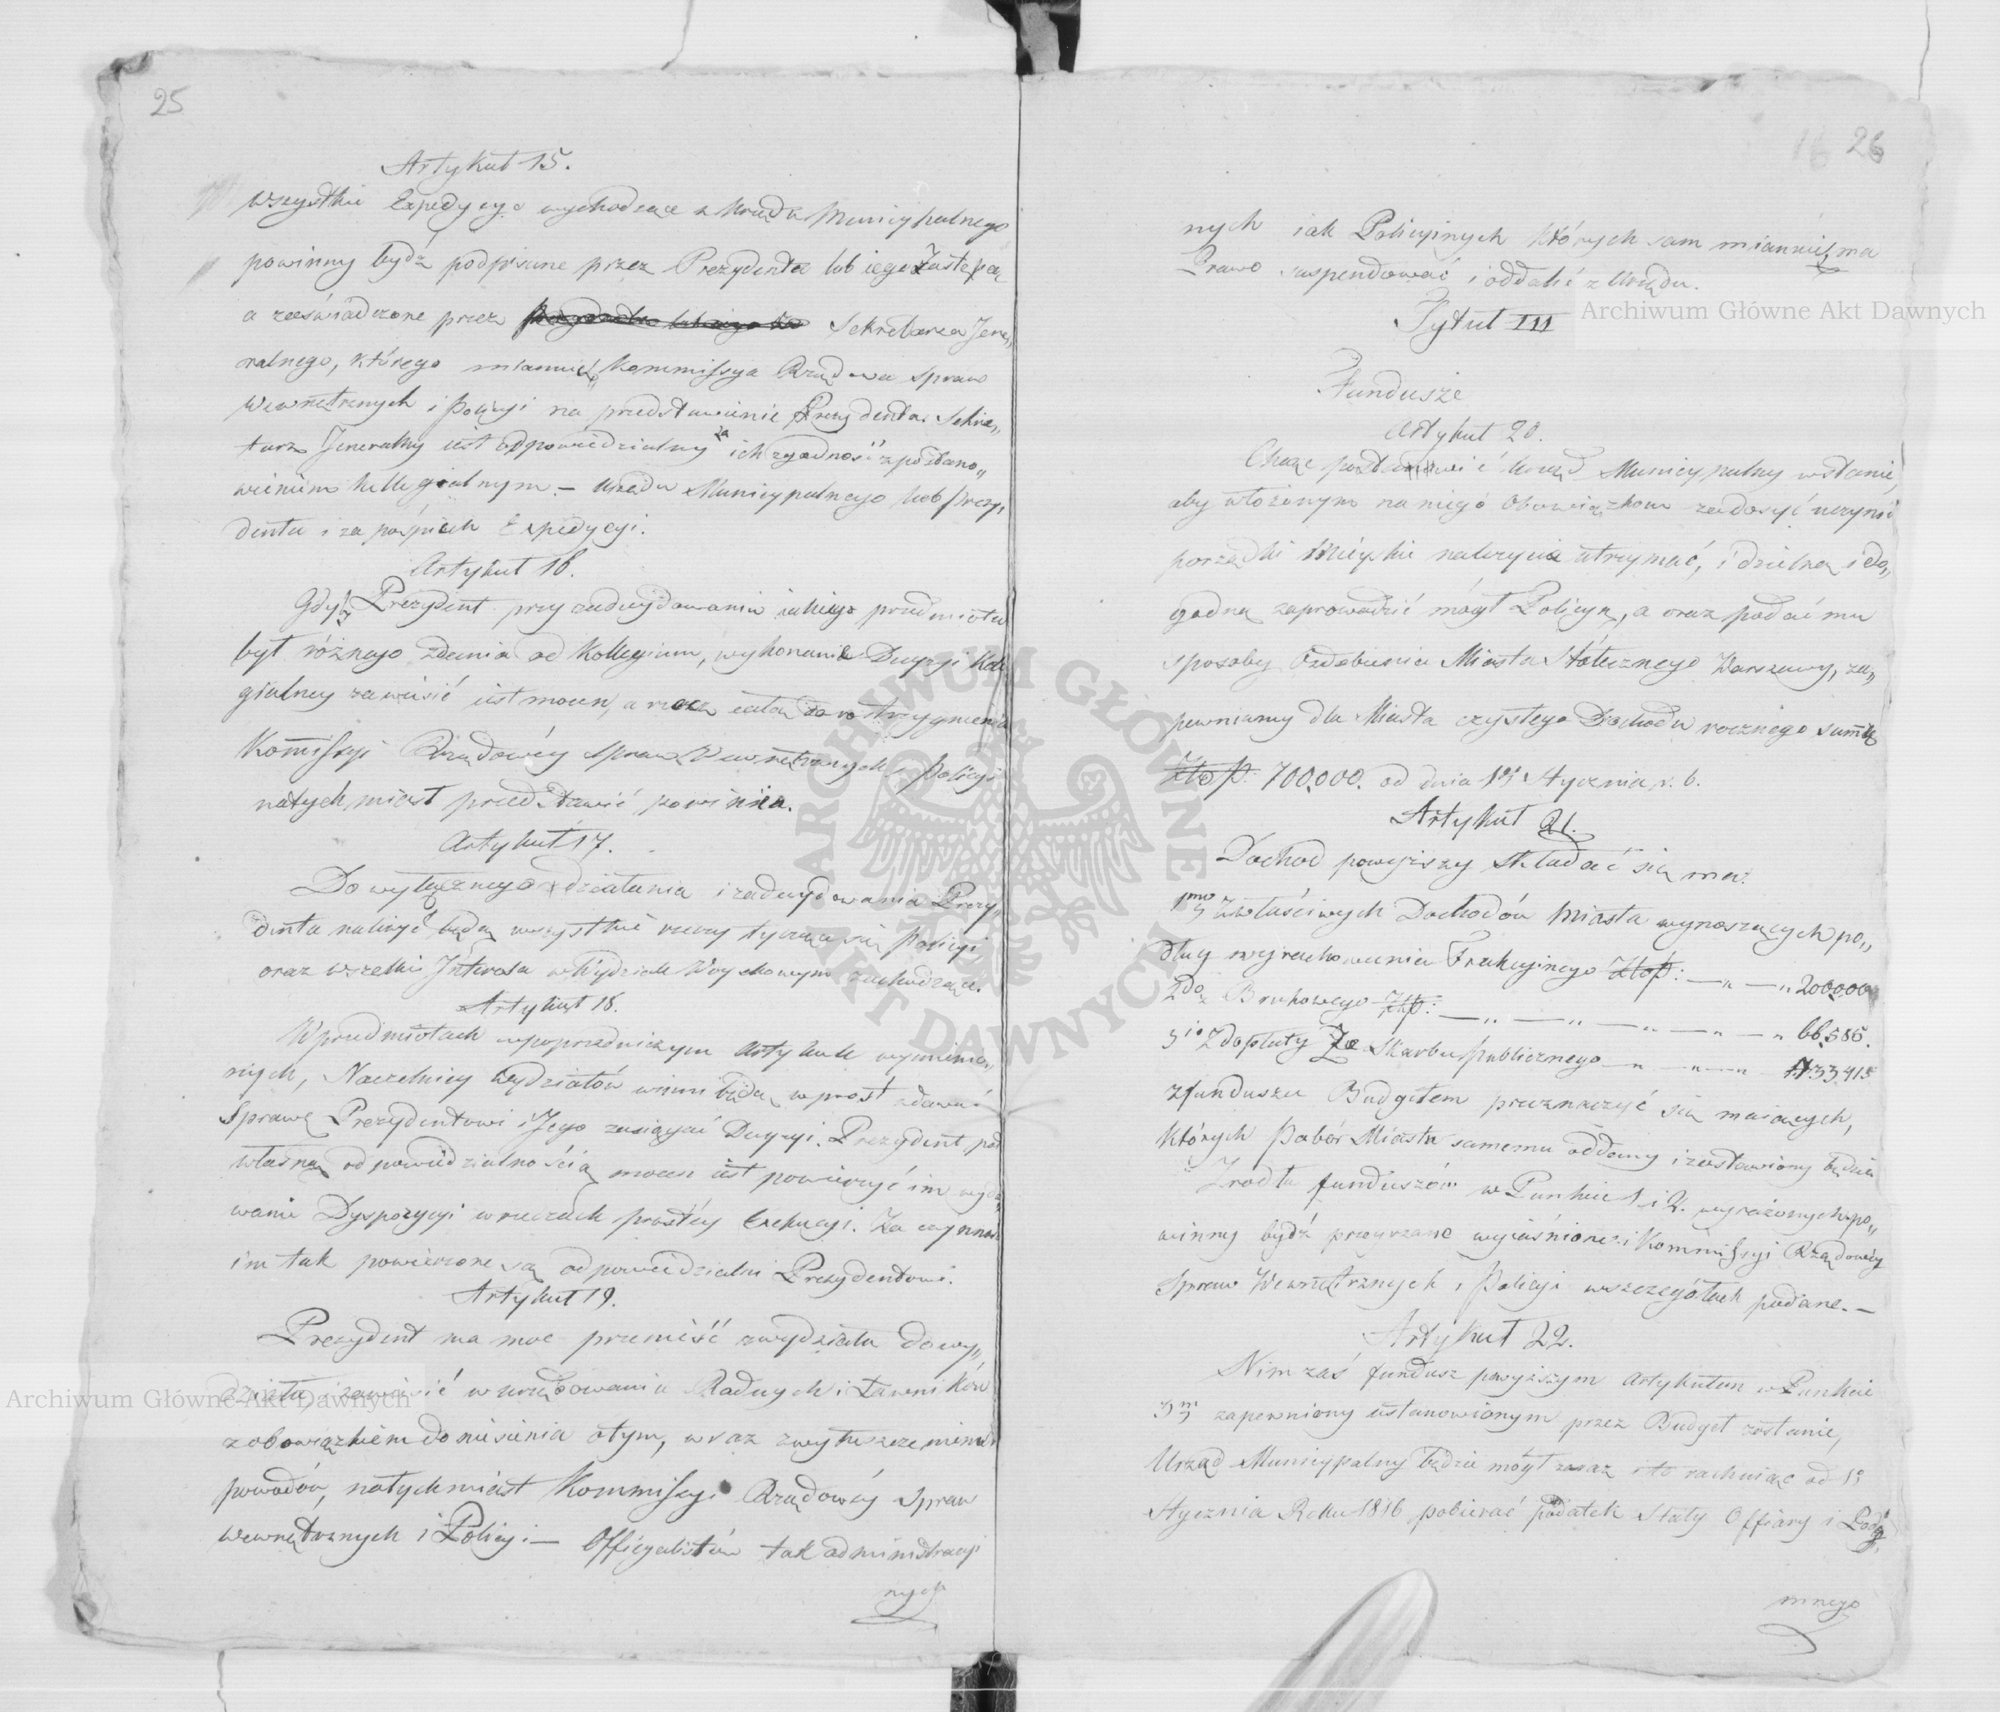 25
Artykuł 15.
Wszystkie Expedycye wychodzące z Urzędu Municypalnego
powinny bydź podpisane przez Prezydenta lub iego Zastępcę
a zaświadczone przez Sekretarza Jene„
ralnego, którego mianuie Kommissya Rządowa Spraw
Wewnętrznych i Policyi na przedstawienie Prezydenta. Sekre„
tarz Jeneralny iest odpowiedzialny za ich zgodność z postano„
wieniem kollegialnym – Urzędu Municypalnego lub Prezy„
denta i za pośpiech Expedycyi.
Artykuł 16.
Gdyby Prezydent przy zadecydowaniu iakiego przedmiotu
był różnego zdania od Kollegium, wykonanie Decyzyi Kole
gialney zawiesić iest mocen, a rzecz całą do rostrzygnienia
Kommissyi Rządowéy Spraw Wewnętrznych i Policyi
natychmiast przedstawić powinien.
Artykuł 17.
Do wyłącznego działania i zadecydowania Prezy„
denta należeć będą wszystkie rzeczy tyczące się Policyi,
oraz wszelkie Interesa w Wydziale Woyskowym zachodzące.
Artykuł 18.
W przedmiotach w poprzedniczym Artykule wymienio„
nych, Naczelnicy Wydziałów winni będą wprost zdawać
Sprawę Prezydentowi i Jego zasięgać Decyzyi. Prezydent pod
własną odpowiedzialnością mocen iest powierzyć im wyda„
wanie Dyspozycyi w rzeczach prostéy Exekucyi. Za czynności
im tak powierzone są odpowiedzialni Prezydentowi.
Artykuł 19.
Prezydent ma moc przenieść z wydziału do wy„
działu, i zawiesić w urzędowaniu Radnych i Ławników
z obowiązkiem doniesienia o tym, wraz z wytłuszczeniem
powodów, natychmiast Kommissyi Rządowéy Spraw
wewnętrznych i Policyi – Officyalistów tak administracyi
nych
16 26
nych iak Policyinych których sam mianuie, ma
Prawo suspendować i oddalić z Urzędu.
Tytuł III
Fundusze
Artykuł 20.
Chcąc postawić Urząd Municypalny w stanie,
aby włożonym na niego Obowiązkom zadosyć uczynić
porządki Mieyskie należycie utrzymać, i dzielną i do„
godną zaprowadzić mógł Policyą, a oraz podać mu
sposoby Ozdobienia Miasta Stołecznego Warszawy, za„
pewniamy dla Miasta czystego Dochodu rocznego summę
Złop. 700,000. od dnia 1go Stycznia r. b.
Artykuł 21.
Dochod powyższy składać się ma:
1mo Z właściwych Dochodów Miasta wynoszących po„
dług wyrachowania Frakcyinego Złop: — „ — „ 200,000
2do z Brukowego Złp: — „ — „ — „ — „ — „ 66,585.
3io Z dopłaty Ze Skarbu publicznego — „ — „ — „ 433,415
z funduszu Budgetem przeznaczyć się maiących,
których Pobór Miastu samemu oddany i zostawiony będzie
Źrodła funduszów w Punkcie 1 i 2. wyrażonych po„
winny bydź przeyrzane wyiaśnione i Kommissyi Rządowéy
Spraw Wewnętrznych i Policyi w szczegółach podane. –
Artykuł 22.
Nim zaś fundusz powyższym Artykułem w Punkcie
3m zapewniony ustanowionym przez Budget zostanie,
Urząd Municypalny będzie mógł zaraz i to rachuiąc od 1o
Stycznia Roku 1816 pobierać podatek Stały Offiary i Pody
mnego
ARCHIWUM GŁÓWNE AKT DAWNYCH
Archiwum Główne Akt Dawnych
Archiwum Główne Akt Dawnych